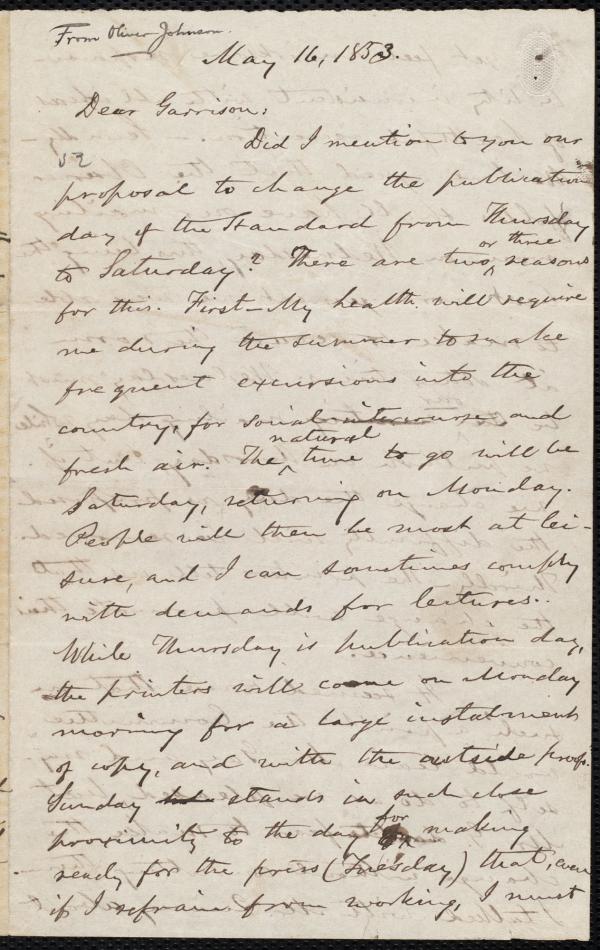 From Oliver Johnson.
May 16, 1853.
Dear Garrison:
Did I mention to you our
52
proposal to change the publication
day of the Standard from Thursday
or three
to Saturday? There are two seasons
for this. First—My health will require
me during the summer to make
frequent excursions into the
country, for social intercourse and
natural
fresh air. The time to go will be
Saturday, returning on Monday.
People will then be most at lei-
sure, and I can sometimes comply
with demands for lectures.
While Thursday is publication day,
the printers will come on Monday
morning for a large instalment
of copy, and with the outside proof.
Sunday stands in such close
for
proximity to the day making
ready for the press (Tuesday) that, even
if I refrain from working, I must